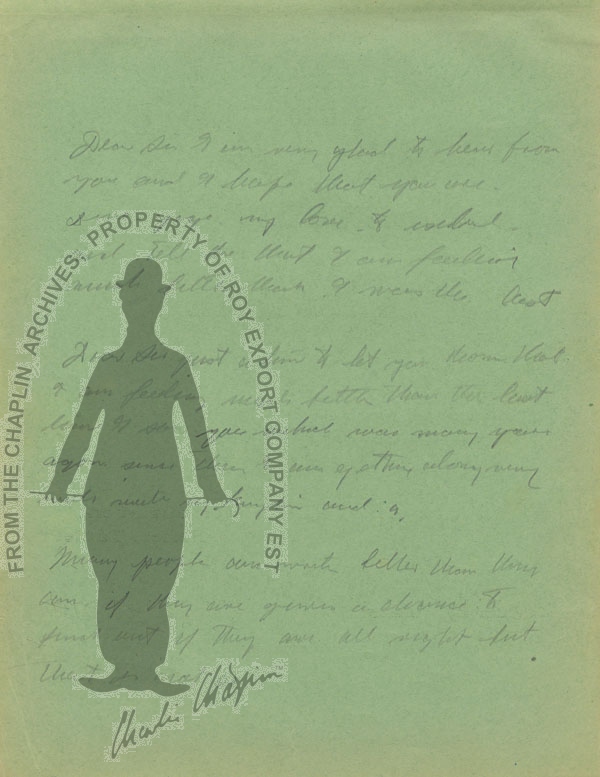 Dear Sir I am very glad to hear from
you and I hope that you are.
my love to
tell that I am feeling
much better than I was the last
Dear Sir just to let you know that
I am feeling much better than the last
time I saw you which was many years
ago since then I am getting along very
much and
Many people are better than they
are if they are given a chance to
find out if they are all right but
that
FROM THE CHAPLIN ARCHIVES, PROPERTY OF ROY EXPORT COMPANY EST
Charlie Chaplin